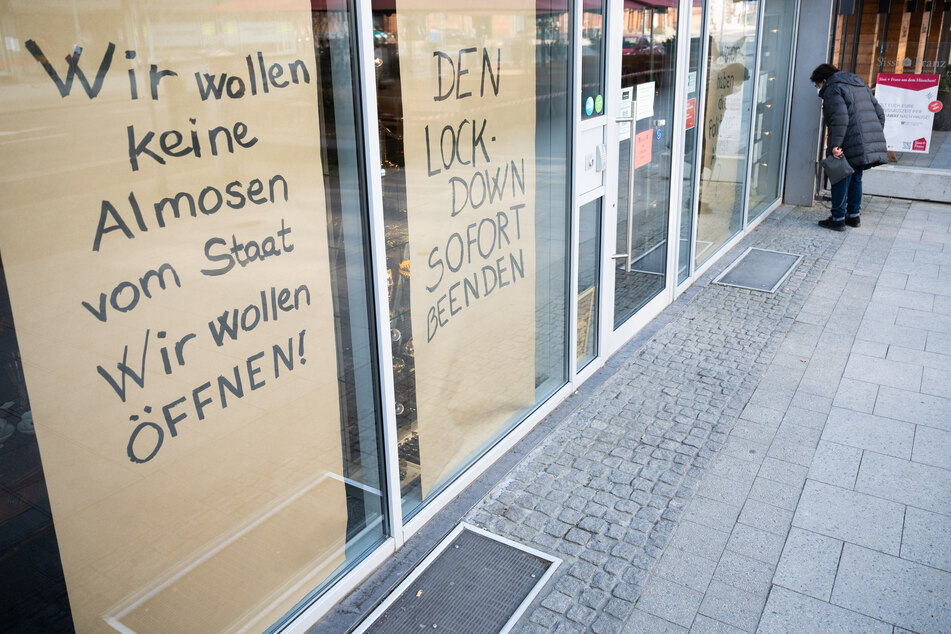 Wir wollen
keine
Almosen
vom Staat
Wir wollen
ÖFFNEN!
DEN
LOCK-
DOWN
SOFORT
BEENDEN
Sissi Franz